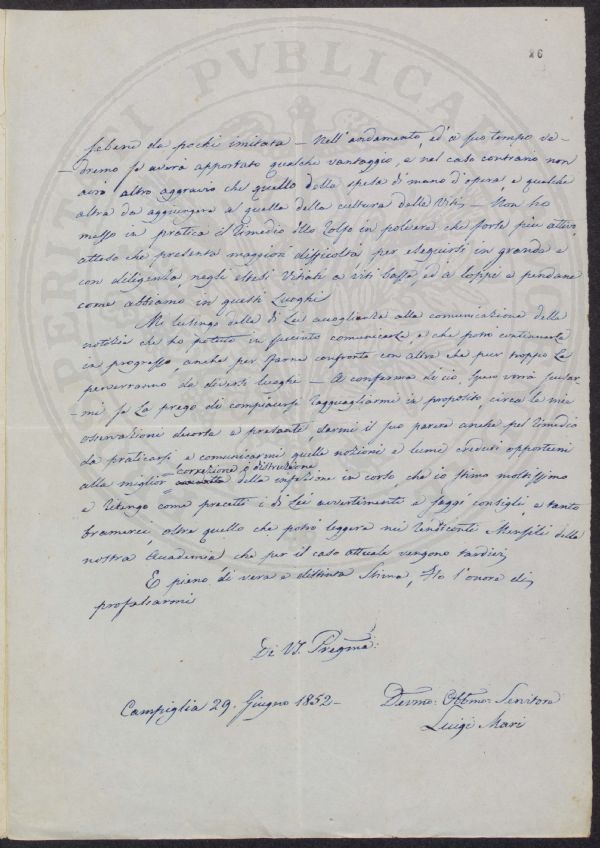 26
sebene da pochi imitata – Nell' andamento, ed a suo tempo ve-
-dremo se avrà apportato qualche vantaggio, e nel caso contrario non
avrà altro aggravio che quello della spesa di mano d'opera, e qualche
altra da aggiungere a quella della cultura delle Viti – Non ho
messo in pratica il rimedio dello Zolfo in polvere che forse più attivo,
atteso che presenta maggiori difficoltà per eseguirsi in grande e
con diligenza, negli estesi Vitiati a viti basse, ed a loppi e pendane
come abbiamo in questi Luoghi
Mi lusingo della di Lei accoglienza alla comunicazione delle
notizie che ho potuto in succinto comunicarle e che potrò continuarle
in progresso, anche per farne confronto con altre che pur troppo Le
perverranno da diversi luoghi – A conferma di ciò, spero vorrà scusar-
-mi se La prego di compiacersi ragguagliarmi in proposito, circa le mie
osservazioni decorse e presenti, darmi il suo parere anche pel rimedio
da praticarsi, e comunicarmi quelle nozioni e lume crederà opportuni
correzione o distruzione
alla miglior della infezione in corso, che io stimo moltissimo
e ritengo come precetti i di Lei avvertimenti e saggi consigli, e tanto
bramerei oltre quello che potrò leggere nei Rendiconti Mensili della
nostra Accademia che per il caso attuale vengono tardivi
E pieno di vera e distinta Stima, Ho l'onore di
professarmi
Di VS. Pregma:
Campiglia 29. Giugno 1852 –
Devmo: Obbmo: Servitore
Luigi Mari
PERITI PVBLICA